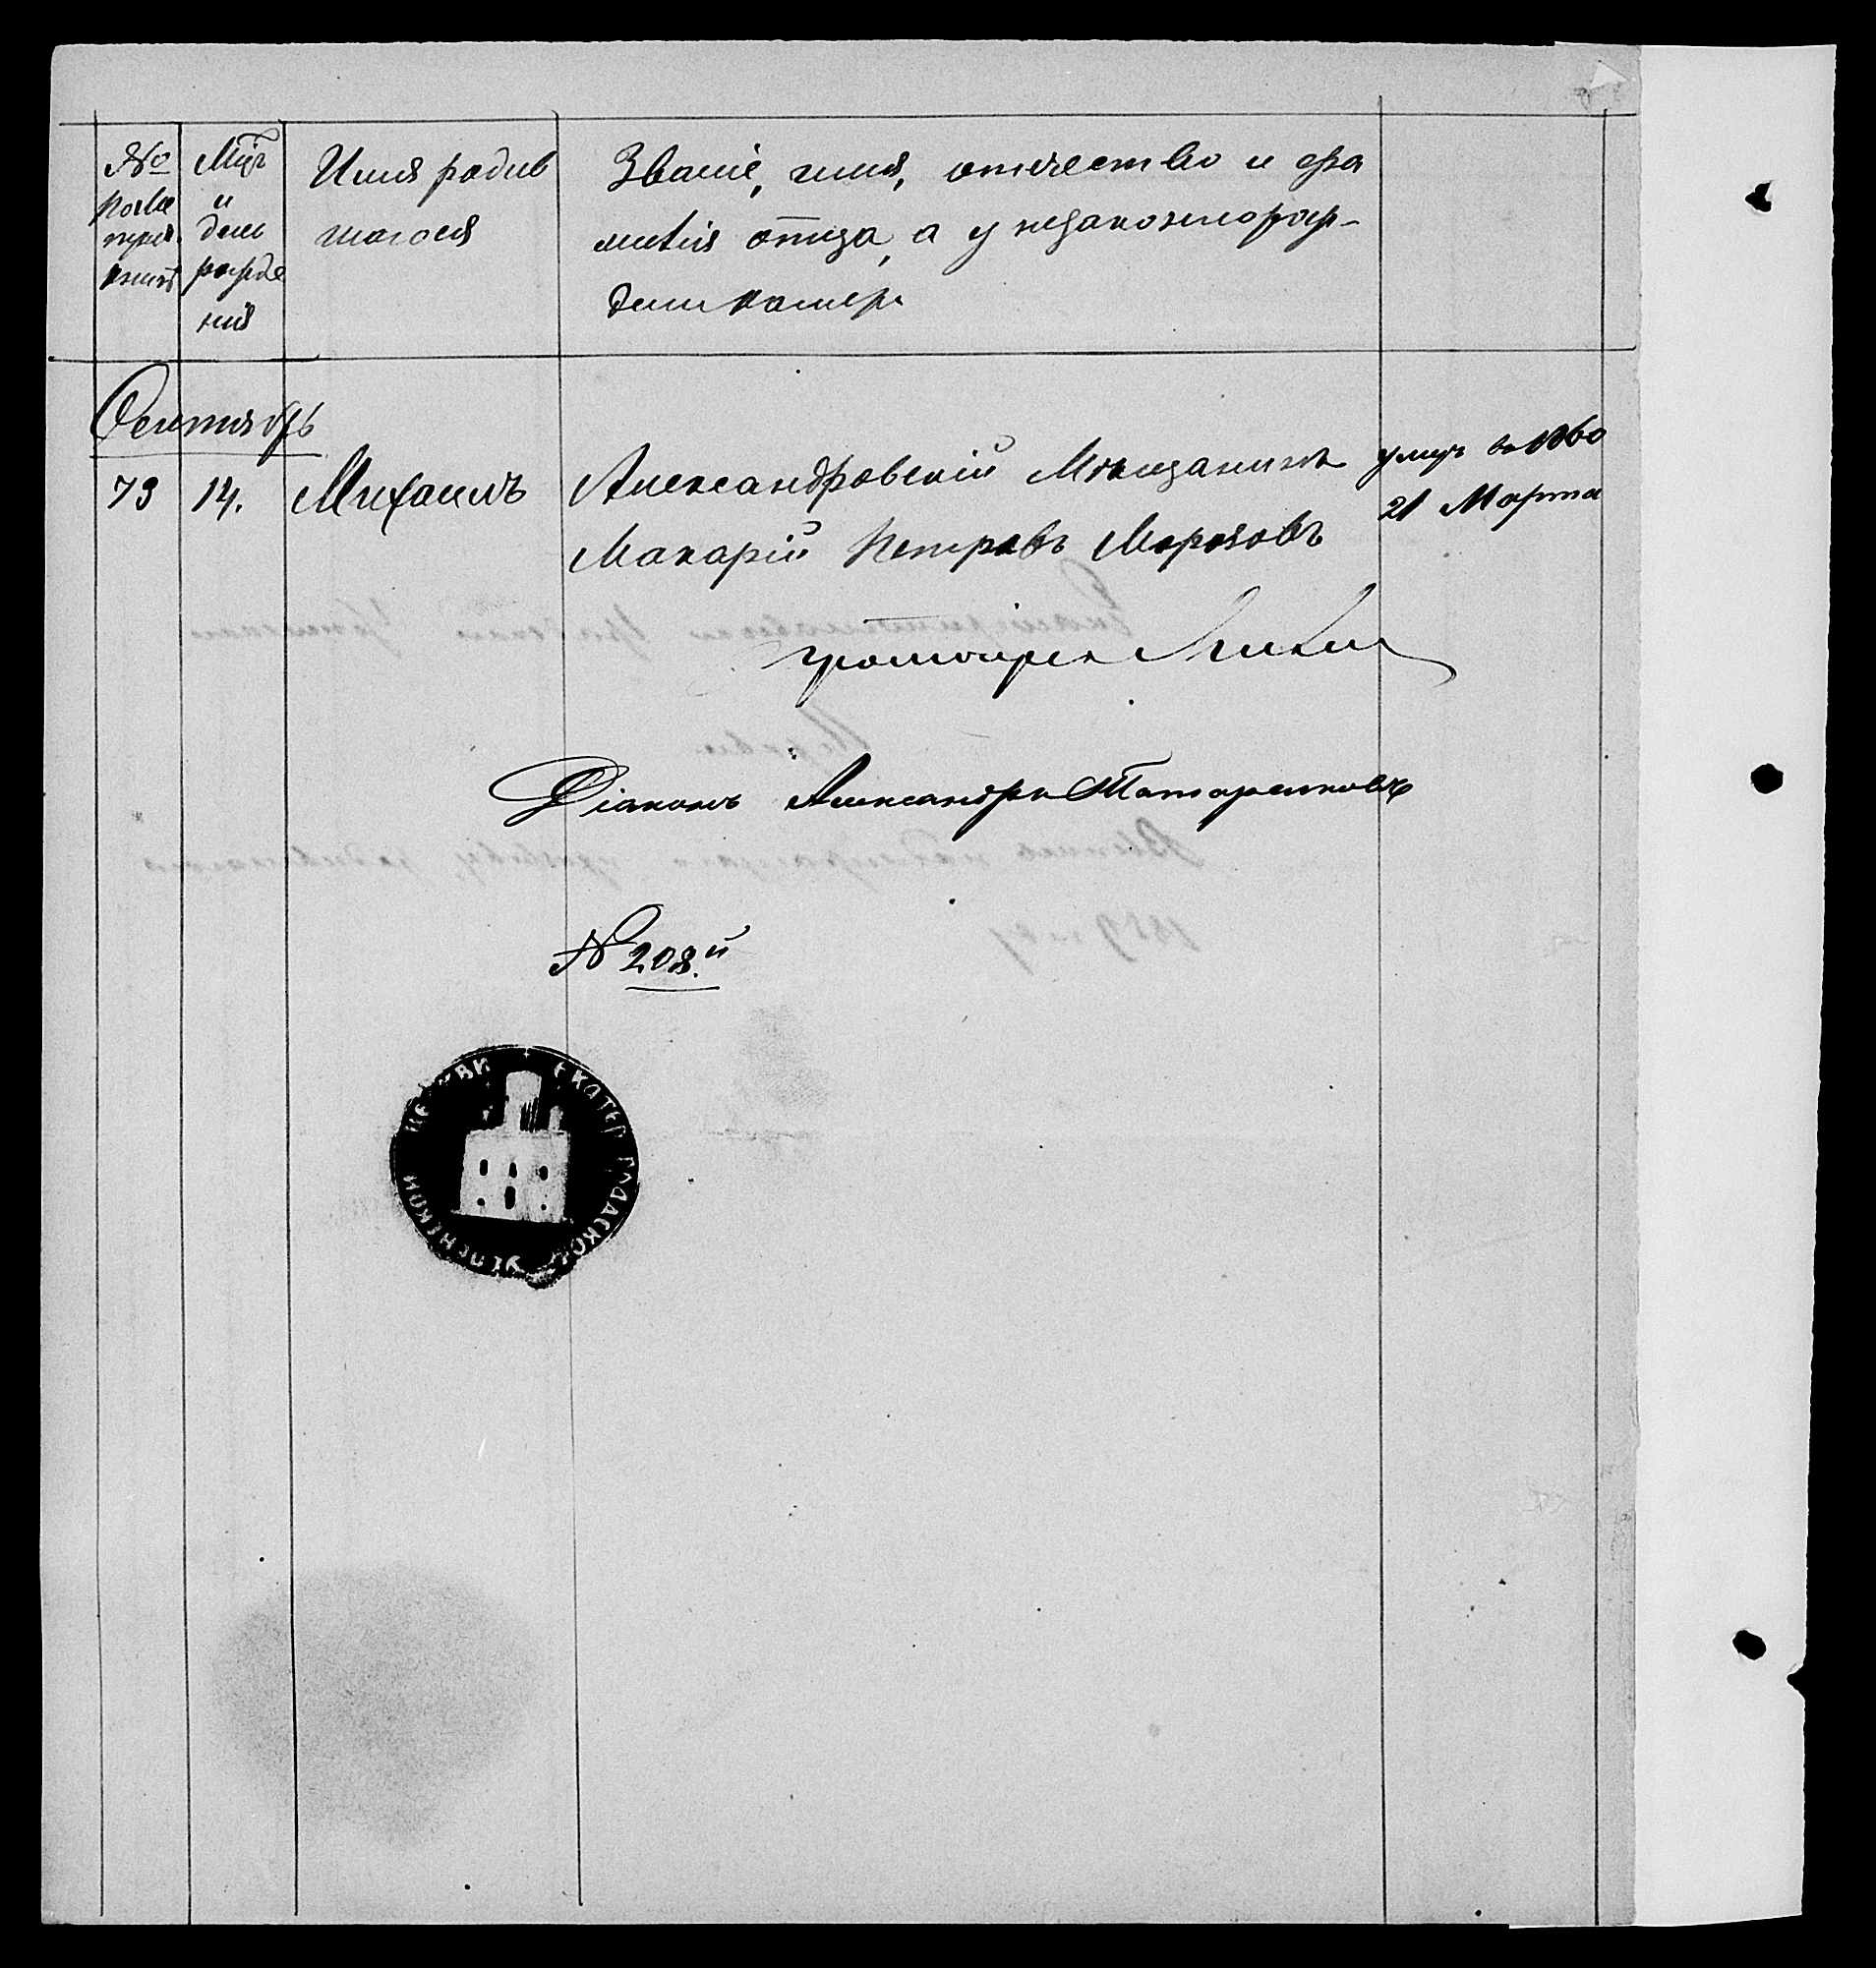 №
мѣтр.
книгѣ
Мцъ
и
день
рожде
нія
Имя родив
шагося
Званіе, имя, отчество и фа
милія отца, а у незаконнорож-
ден матери
Сентябрь
73 14. Михаилъ
Александровскій Мѣщанинъ
Макарій Петровъ Морозовъ
умеръ въ 1860
21 Марта
протоиерей
Діаконъ Александръ Татариновъ
№ 208.й
ЦЕРКВИ ЕКАТЕР ГРАДСКОЙ УСПЕНСКОЙ